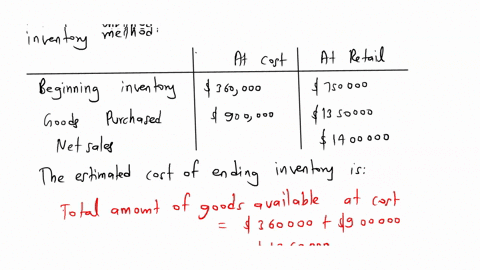 inventory method:
At cost At Retail
Beginning inventory $360,000 $750000
Goods Purchased $900,000 $1350000
Net sales $1400000
The estimated cost of ending inventory is:
Total amount of goods available at cost
= $360000 + $900000